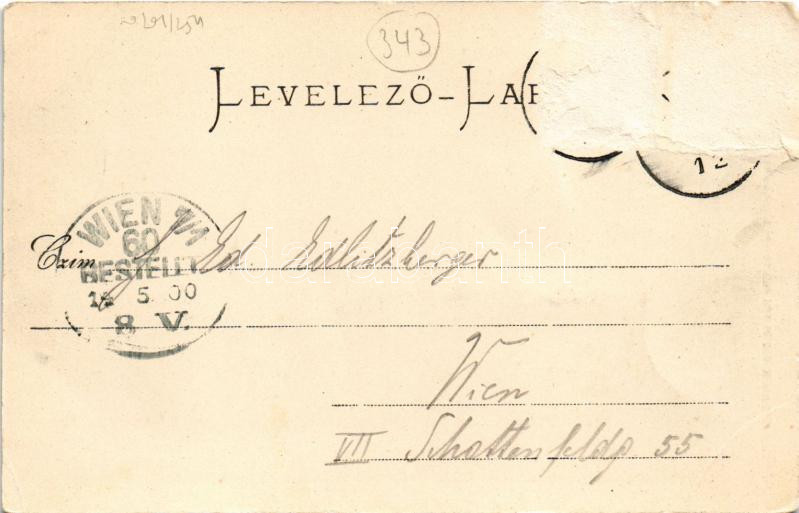 343
LEVELEZŐ-LAP
12
WIEN 7/1
60
BESTELLT
5. 00
8 V.
Czim
Ed. Edlitzberger
Wien
VII Schottenfeldg 55